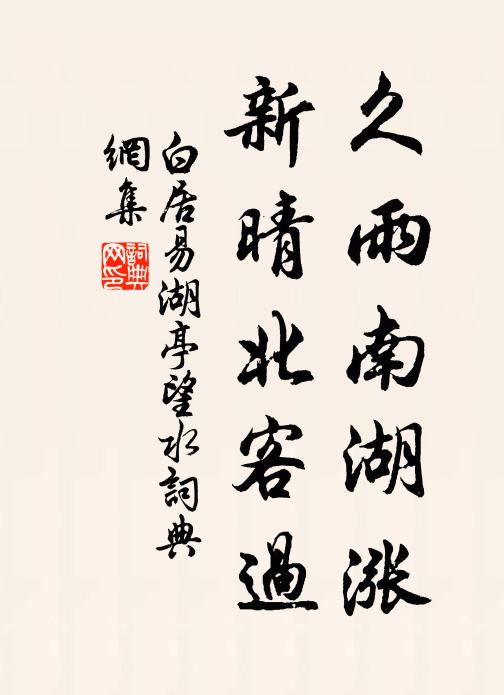 久雨南湖漲
新晴北客過
白居易湖亭望水詞典
網集
詞典網印